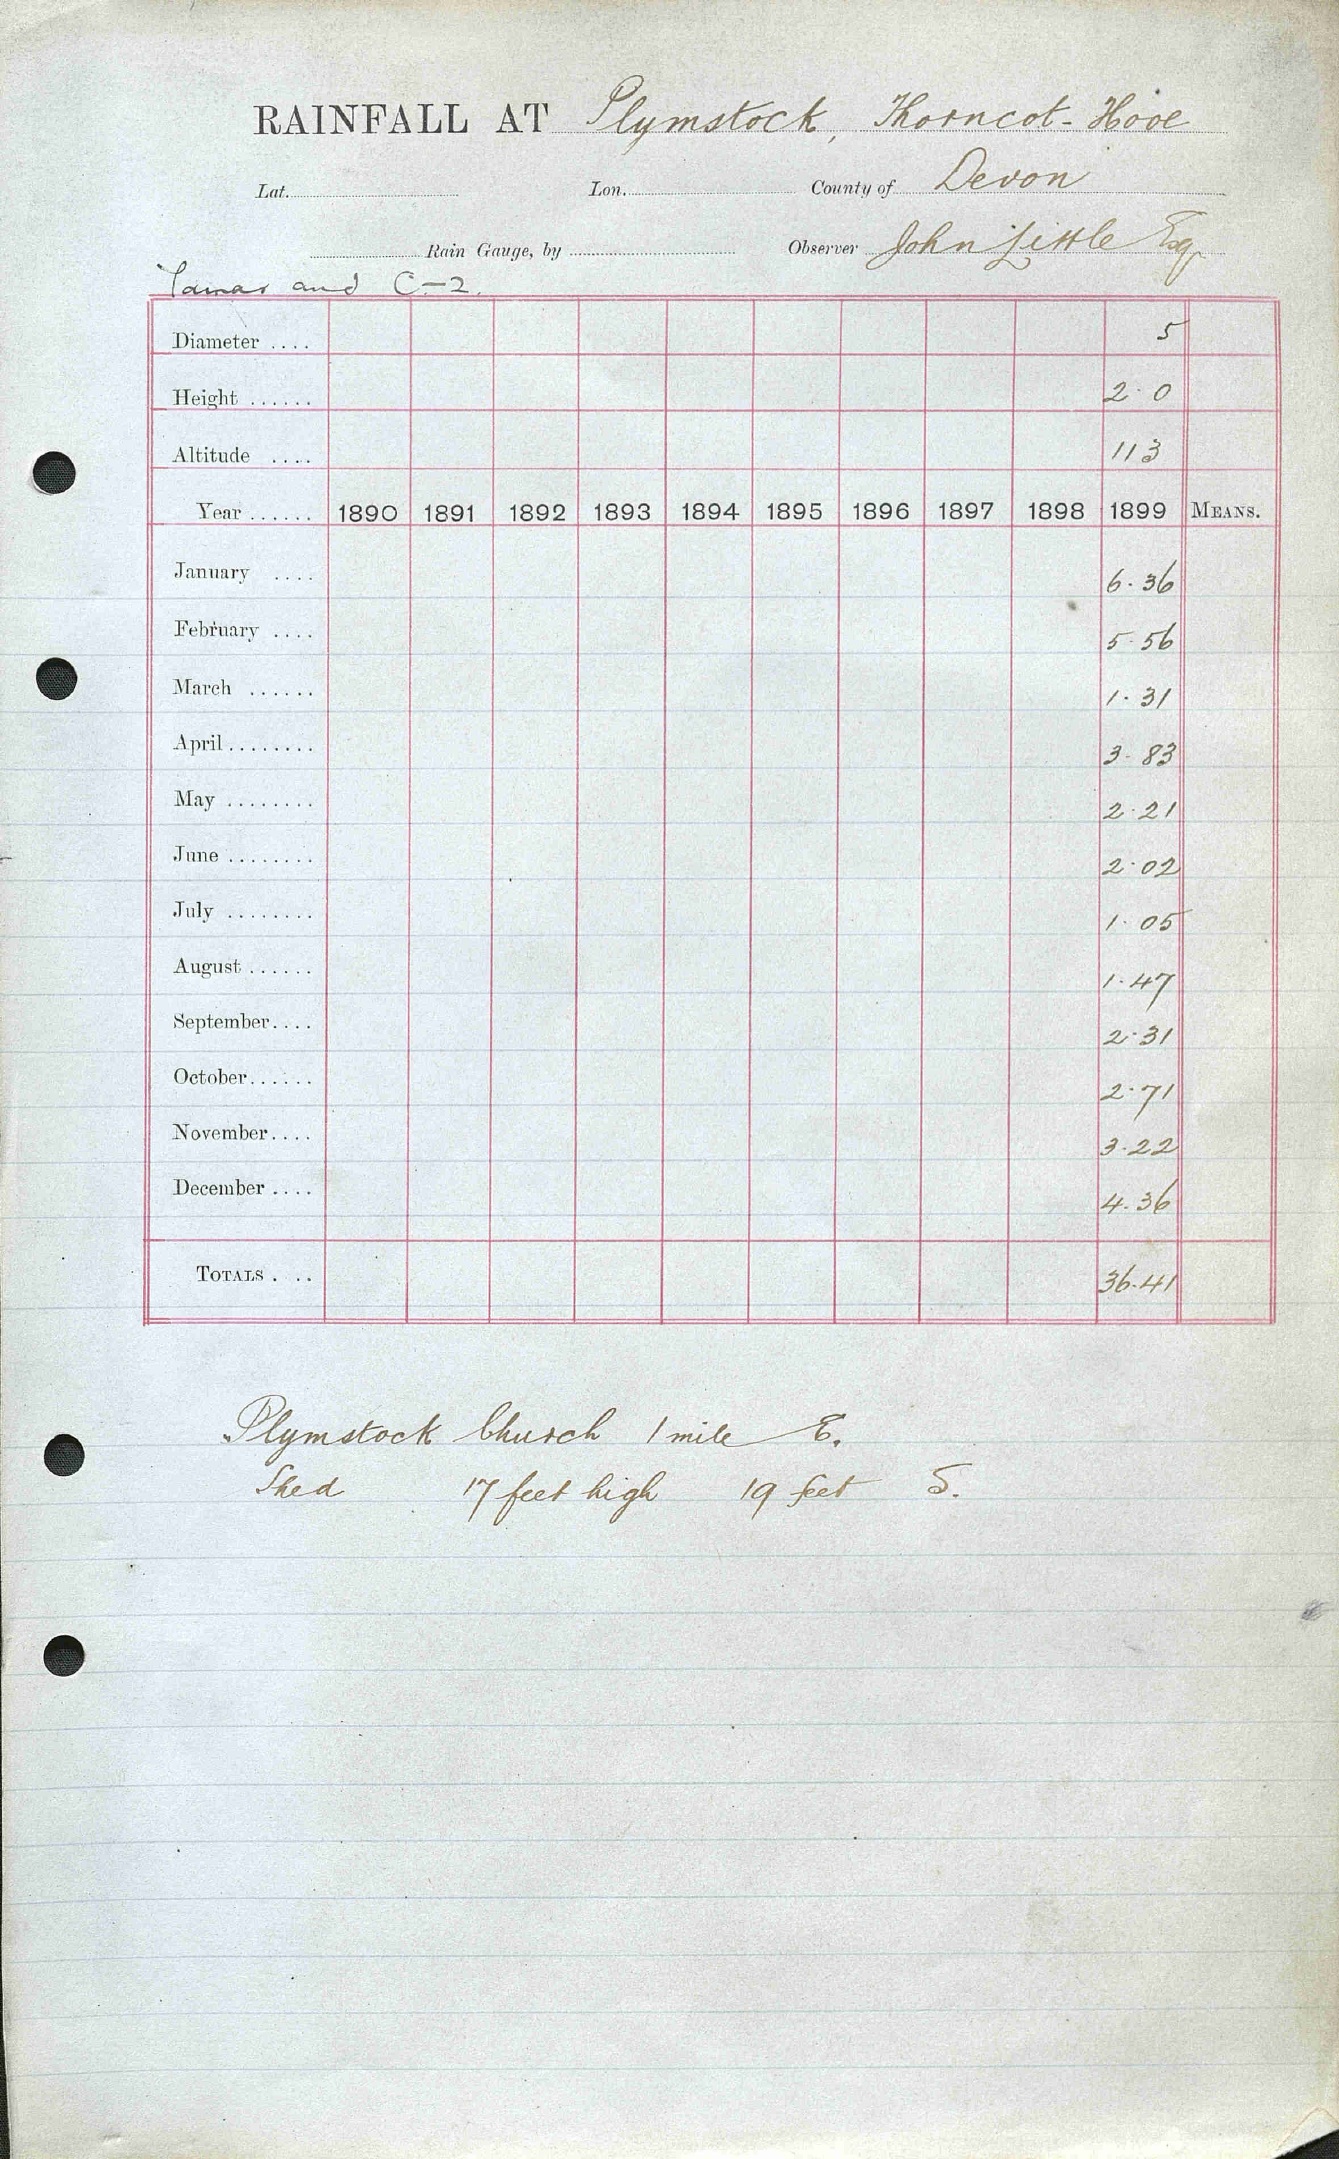 RAINFALL AT Plymstock, Thorncot - Hooe
Lat. Lon. County of Devon
Rain Gauge, by Observer John Little Esq.
Tamar and C-2.
Diameter .... 5
Height ...... 2·0
Altitude .... 113
Year ...... 1890 1891 1892 1893 1894 1895 1896 1897 1898 1899 MEANS.
January .... 6·36
February .... 5·56
March ...... 1·31
April ........ 3·83
May ........ 2·21
June ........ 2·02
July ........ 1·05
August ...... 1·47
September.... 2·31
October...... 2·71
November.... 3·22
December .... 4·36
TOTALS . .. 36·41
Plymstock Church 1 mile E.
Shed 17 feet high 19 feet S.